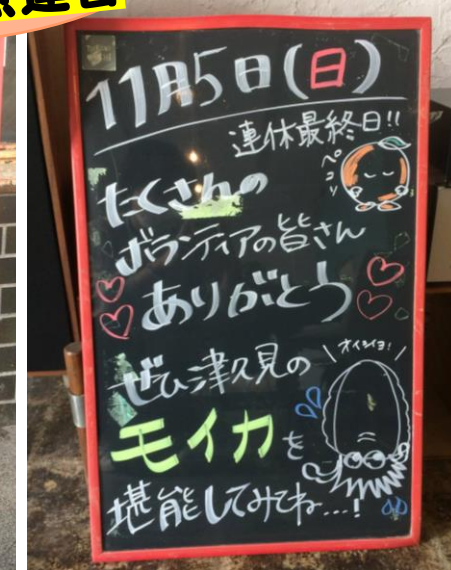 11月5日(日)
連休最終日!!
ペコリ
たくさんの
ボランティアの皆さん
ありがとう
ぜひ津久見の
オイシイヨ!
モイカを
堪能してみてね…!